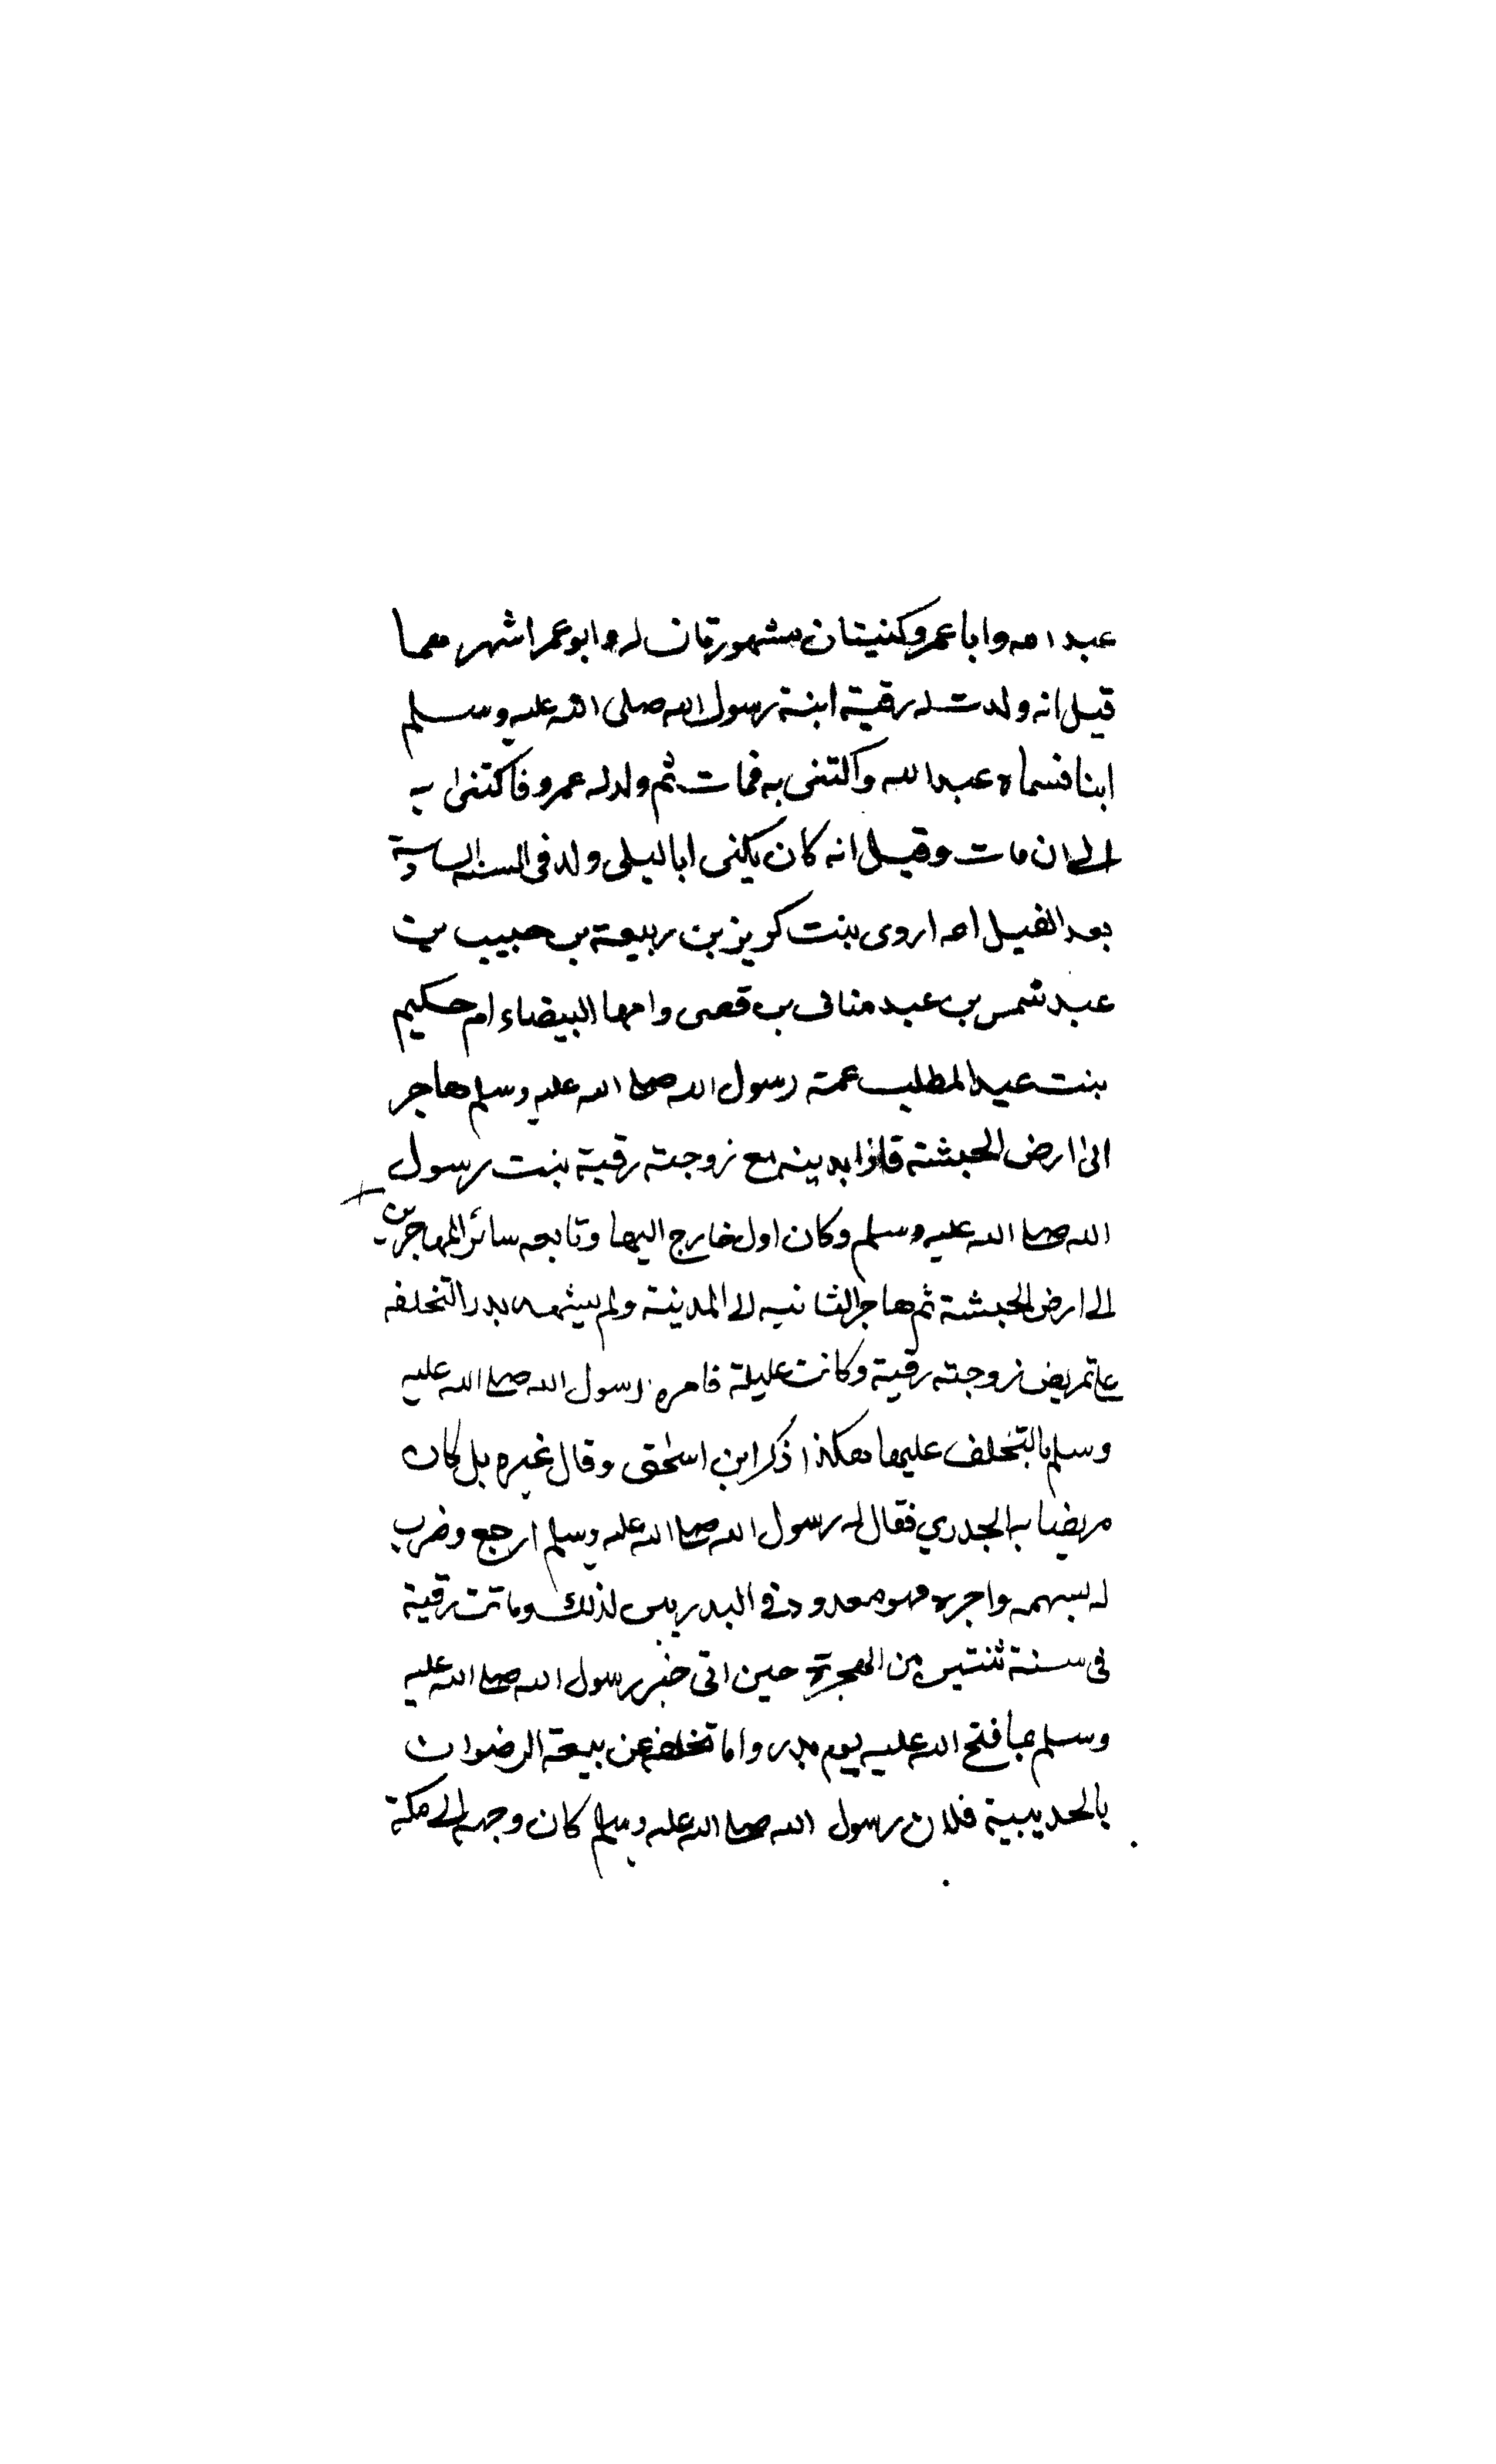 عبد الله وابا عمرو كنيتان مشهورتان له وابو عمر اشهرهما
قيل انه ولدت له رقية ابنة رسول الله صلى الله عليه وسلم
ابنا فسماه عبد الله واكتنى به فمات ثم ولد له عمرو فاكتنى به
الى ان مات وقيل انه كان يكنى ابا ليلى ولد فى السنة السادسة
بعد الفيل امه اروى بنت كريز بن ربيعة بن حبيب بن
عبد شمس بن عبد مناف بن قصى وامها البيضاء ام حكيم
بنت عبد المطلب عمة رسول الله صلى الله عليه وسلم هاجر
الى ارض الحبشة فارا بدينه مع زوجته رقية بنت رسول
الله صلى الله عليه وسلم وكان اول خارج اليها وتابعه سائر المهاجرين
الى ارض الحبشة ثم هاجر الثانيه الى المدينة ولم يشهد بدر التخلفه
على تمريض زوجته رقية وكانت عليلة فامره رسول الله صلى الله عليه
وسلم بالتخلف عليها هكذا ذكر ابن اسحق وقال غيره بل كان
مريضا به الجدري فقال له رسول الله صلى الله عليه وسلم ارجع وضرب
له بسهمه واجره فهو معدود فى البدريين لذلك وماتت رقية
فى سنة ثنتين من الهجرة حين اتى خبر رسول الله صلى الله عليه
وسلم بما فتح الله عليه يوم بدر واما تخلفه عن بيعة الرضوان
بالحديبية فلان رسول الله صلى الله عليه وسلم كان وجهه الى مكة